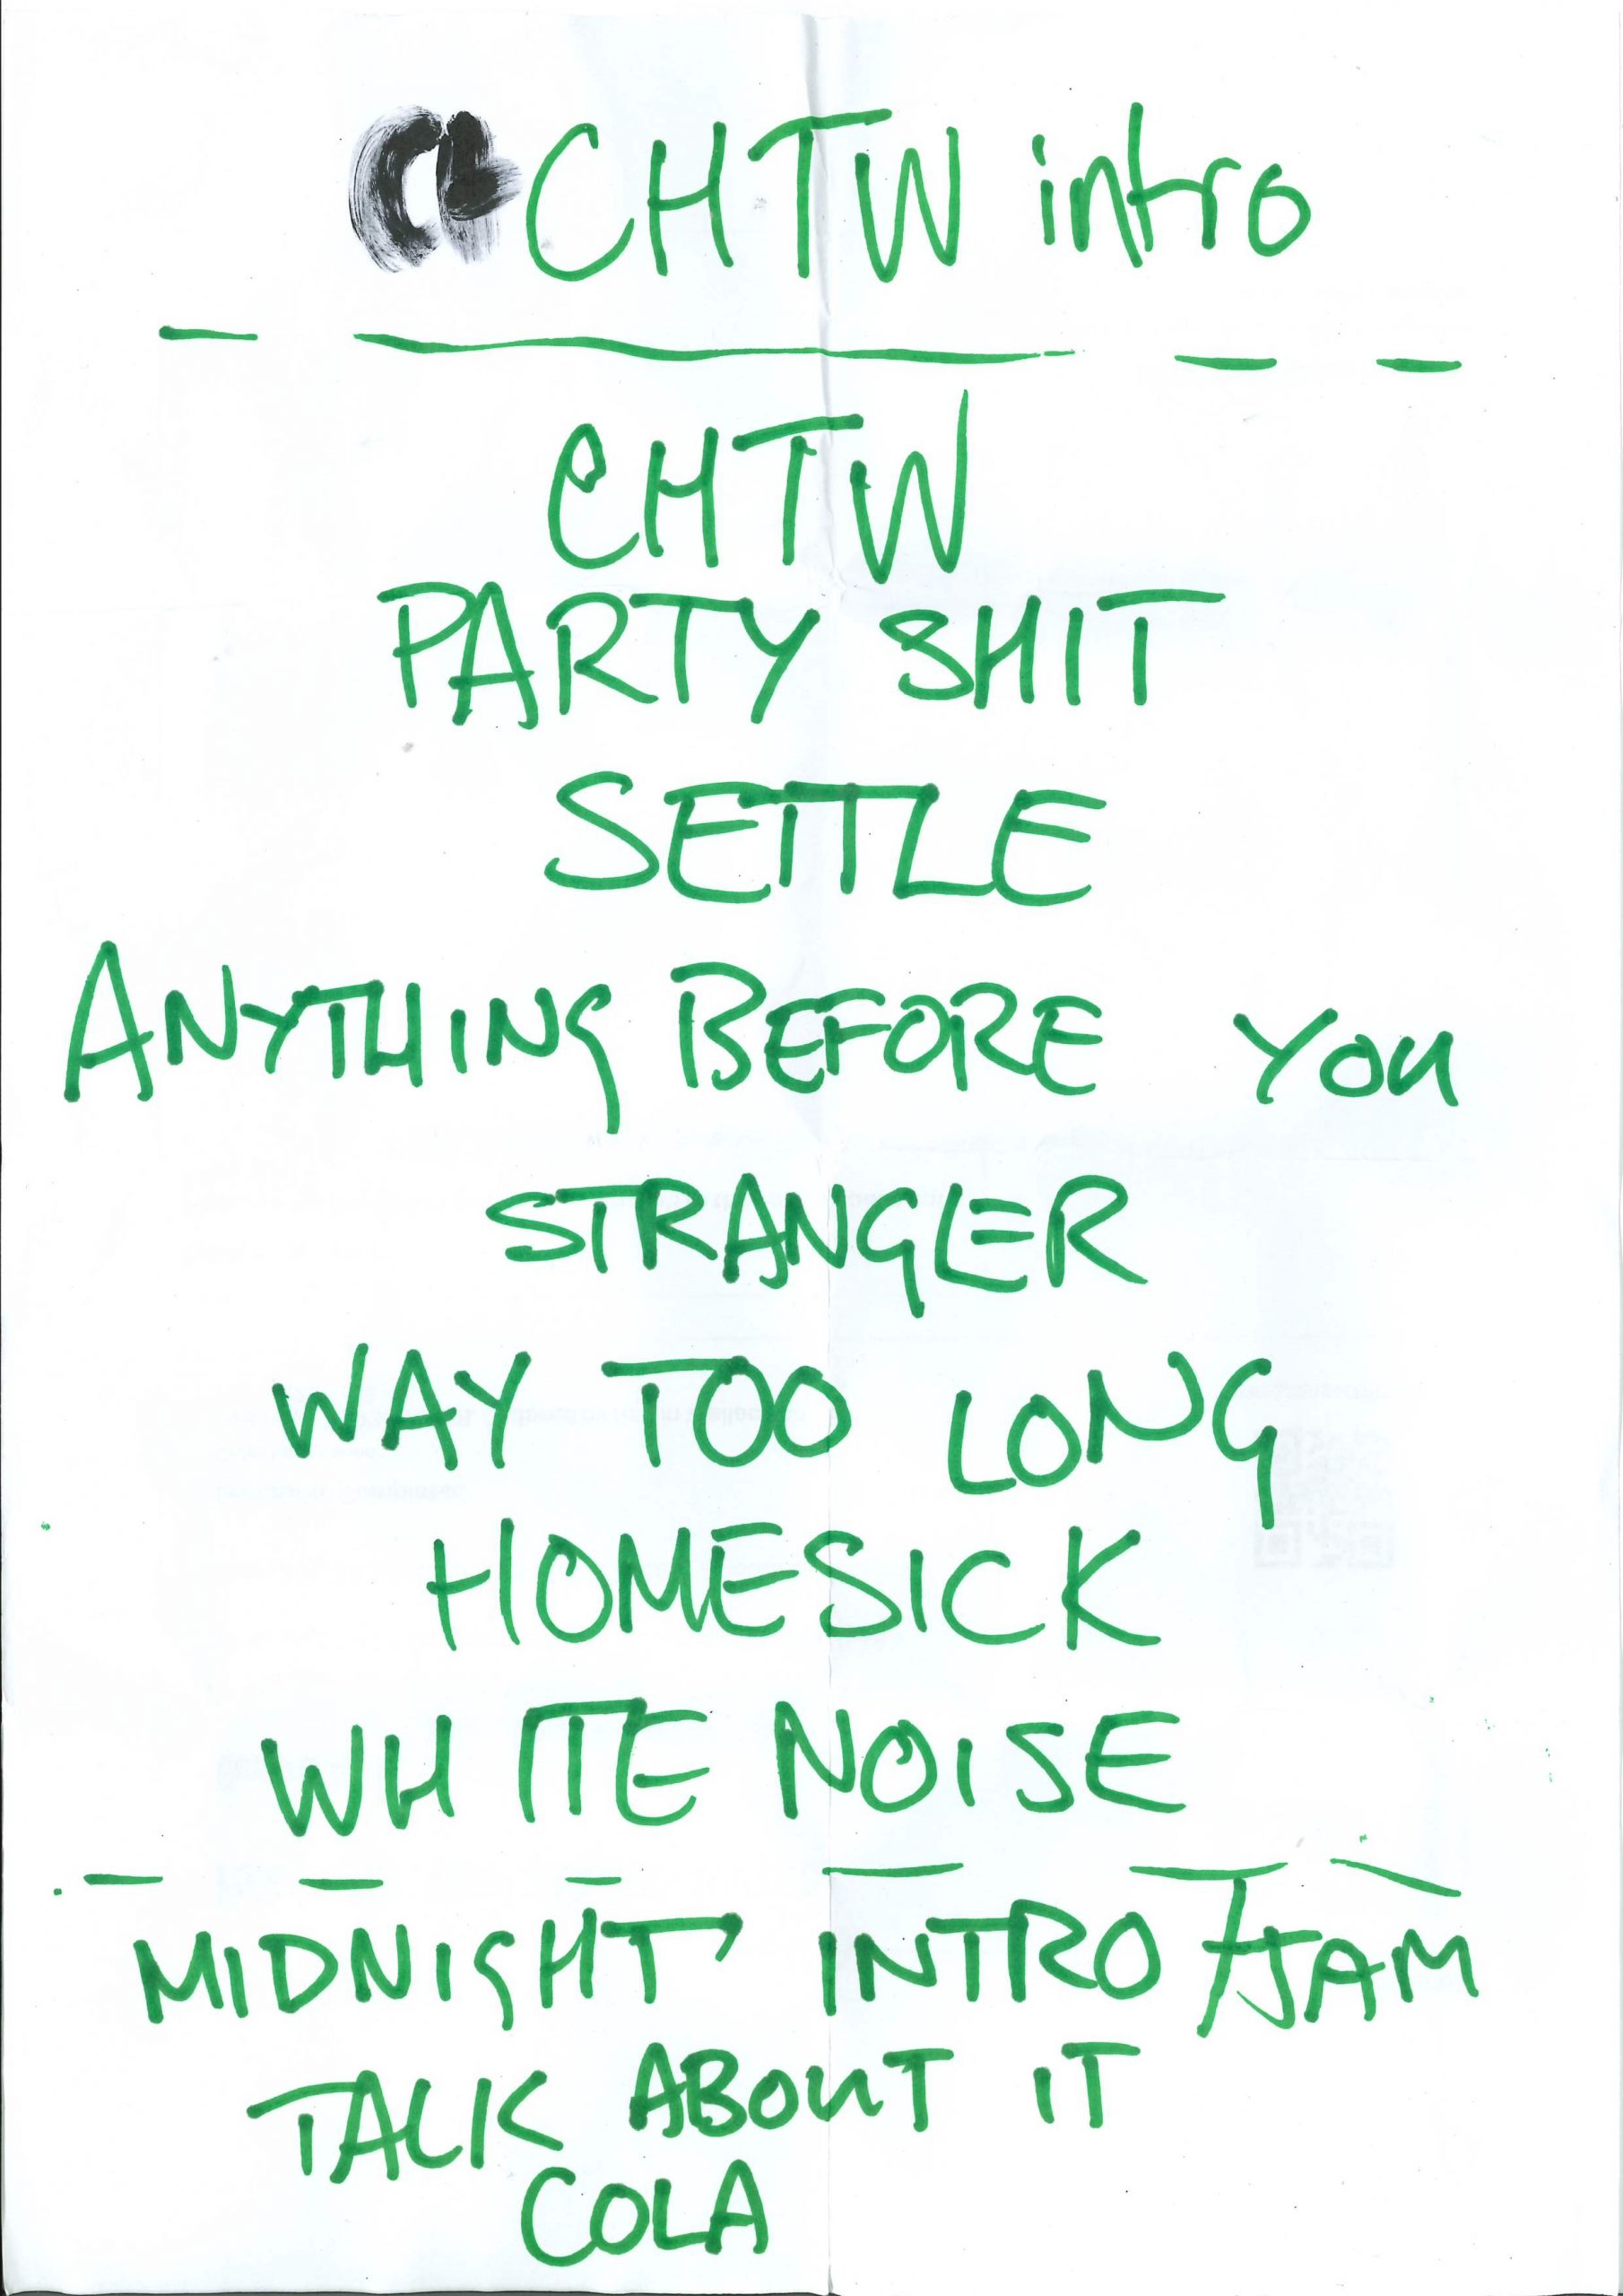 CHTW intro
CHTW
PARTY SHIT
SETTLE
ANYTHING BEFORE YOU
STRANGLER
WAY TOO LONG
HOMESICK
WHITE NOISE
MIDNIGHT' INTRO / JAM
TALK ABOUT IT
COLA